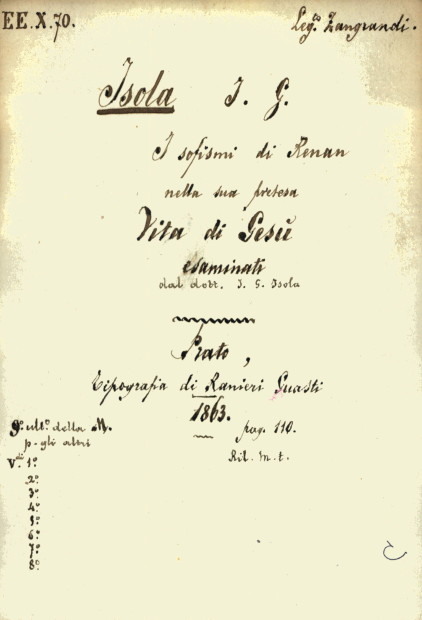 EE.X.70.
Leg.o Zangrandi.
Isola I. G.
I sofismi di Renan
nella sua pretesa
Vita di Gesù
esaminati
dal dott. I. G. Isola
Prato,
Tipografia di Ranieri Guasti
1863.
pag. 110.
9.o ult.o della M.
p. gli altri
Ril. m. t.
V.di 1.o
2.o
3.o
4.o
5.o
6.o
7.o
8.o